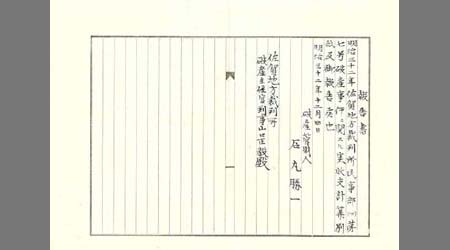 報告書
明治三十二年佐賀地方裁判所民事部第
七号破産事件ニ関スル実収支計算別
紙及御報告候也
明治三十二年十二月四日
破産管財人
石丸勝一
佐賀地方裁判所
破産主任官判事山 毅殿
一